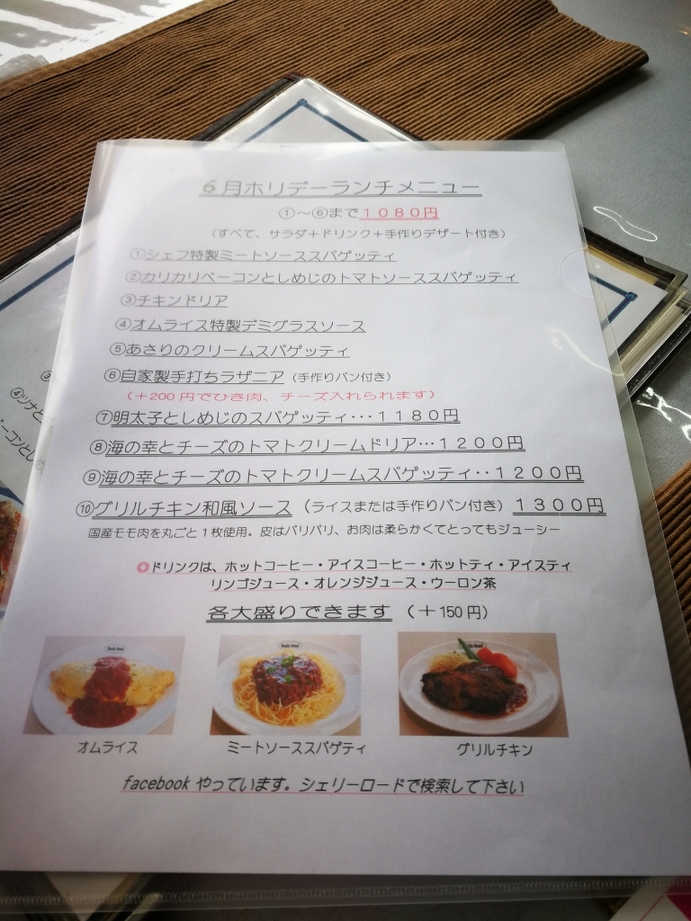 6月ホリデーランチメニュー
①～⑥まで1080円
（すべて、サラダ＋ドリンク＋手作りデザート付き）
①シェフ特製ミートソーススパゲッティ
②カリカリベーコンとしめじのトマトソーススパゲッティ
③チキンドリア
④オムライス特製デミグラスソース
⑤あさりのクリームスパゲッティ
⑥自家製手打ちラザニア（手作りパン付き）
（＋200円でひき肉、チーズ入れられます）
⑦明太子としめじのスパゲッティ・・・1180円
⑧海の幸とチーズのトマトクリームドリア…1200円
⑨海の幸とチーズのトマトクリームスパゲッティ・・1200円
⑩グリルチキン和風ソース（ライスまたは手作りパン付き）1300円
国産モモ肉を丸ごと1枚使用。皮はパリパリ、お肉は柔らかくてとってもジューシー
◎ドリンクは、ホットコーヒー・アイスコーヒー・ホットティ・アイスティ
リンゴジュース・オレンジジュース・ウーロン茶
各大盛りできます（＋150円）
オムライス
ミートソーススパゲティ
グリルチキン
facebookやっています。シェリーロードで検索して下さい